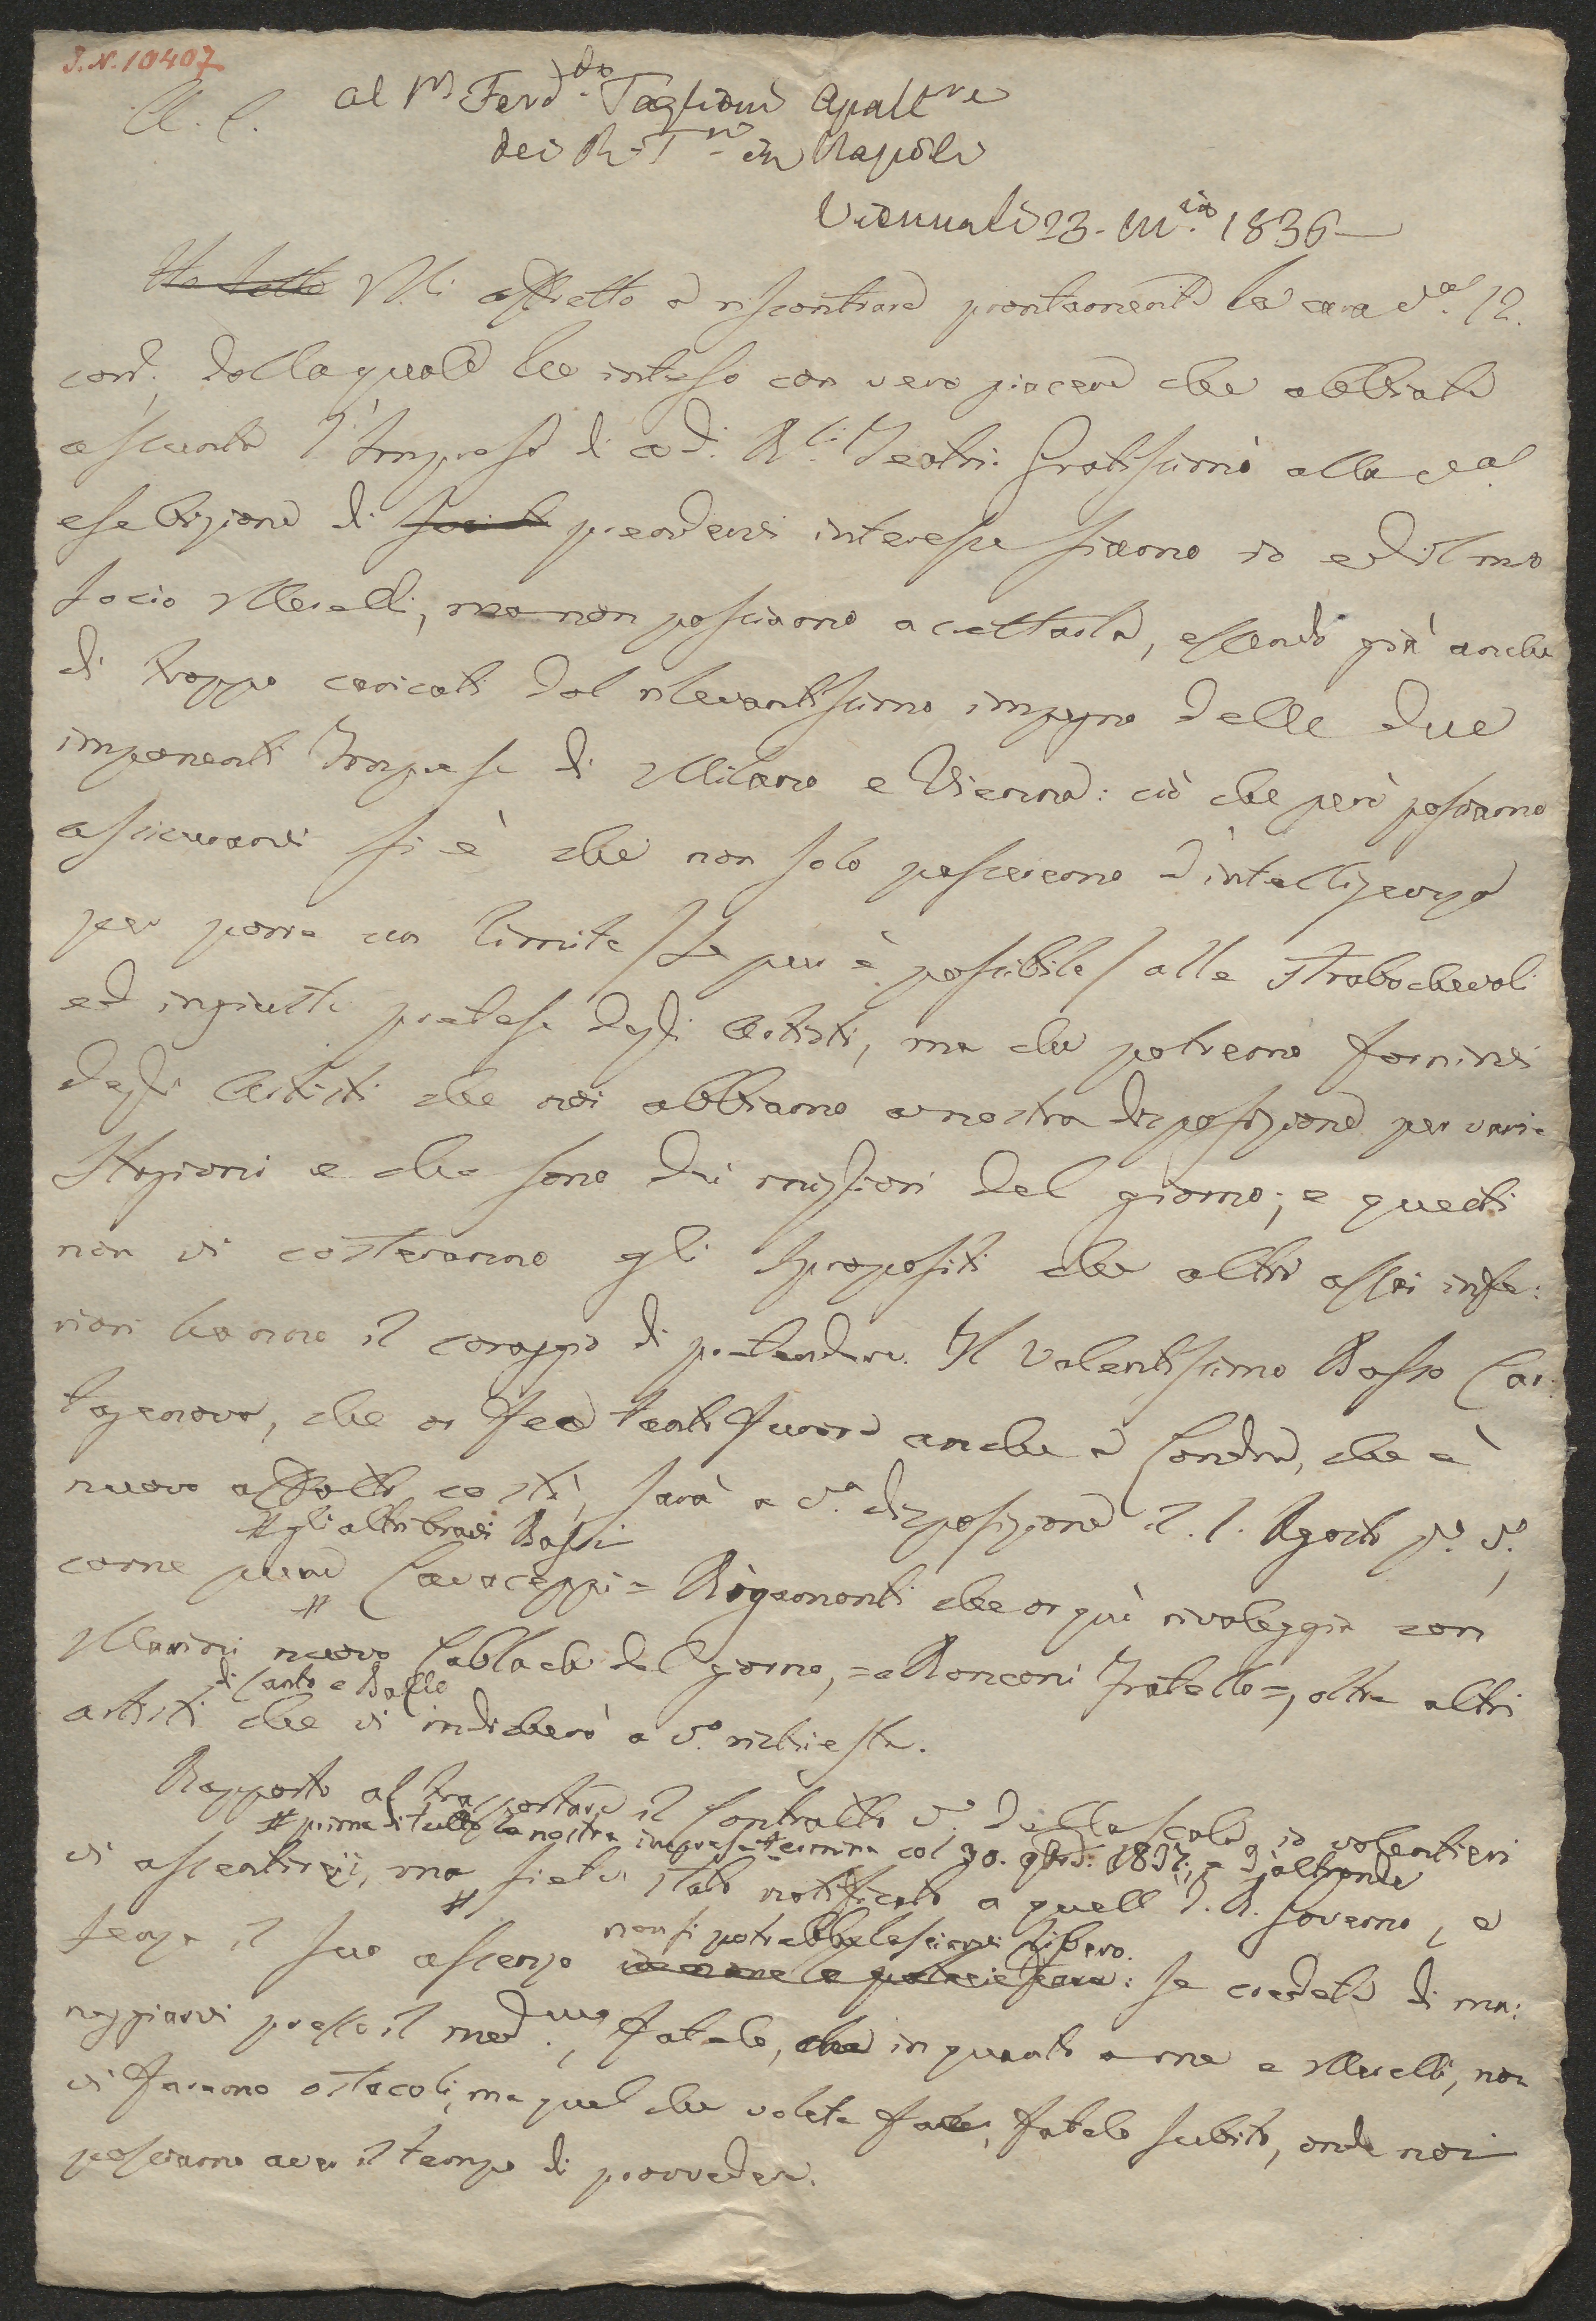 I.N. 10407
A. C.
al Sr Ferd.do Taglioni Apaltre
dei R. Tri in Napoli
Vienna li 23. M.gio 1836
Ho letto Mi affretto a riscontrare prontamente la cara v.a 12.
cord. dalla quale ho inteso con vero piacere che abbiate
assunta l'Impresa di cod.i R.li Teatri. Gratissimi alla v.a
esebizione di prendervi interesse siamo io ed il mio
socio Merelli, ma non possiamo accettarla, essendo già anche
di troppo caricati dal rilevantissimo impegno delle due
imponenti Imprese di Milano e Vienna: ciò che però possiamo
assicurarvi si è che non solo passeremo d'intelligenza
per porre un limite /se pur è possibile/ alle strabochevoli
ed ingiuste pretese degli Artisti, ma che potremo fornirvi
degli Artisti che noi abbiamo a nostra disposizione per varie
Stagioni e che sono dei migliori del giorno; e questi
non vi costeranno gli spropositi che altri assai infe:
riori hanno il coraggio di pretendere. Il valentissimo Basso Car:
tagenova, che or fece tanti furori anche a Londra, che è
nuovo affatto costì, sarà a v.a disposizione il 1. Agosto p.o v.o,
# gli altri bravi Bassi
come pure # Cavaceppi = Rigamonti che or quì rivaleggia con
Marini nuovo Lablache del giorno, = e Ronconi Fratello =, oltre altri
di Canto e Ballo
artisti che vi indicherò a v.a richiesta.
Rapporto al trasportare il Contratto v.o della Scala io volentieri
# prima di tutto la nostra impresa termina col 30. 9bre: 1837; e d'altronde
vi assentirei, ma # siete stato notificato a quell' I. R. Governo, e
non si potrebbe lasciarvi libero.
senza il suo assenso : Se credete di ma:
neggiarvi presso il med.mo, fatelo, che in quanto a me e Merelli, non
vi faremo ostacoli, ma quel che volete fare, fatelo subito, onde noi
possiamo aver il tempo di provvedere.